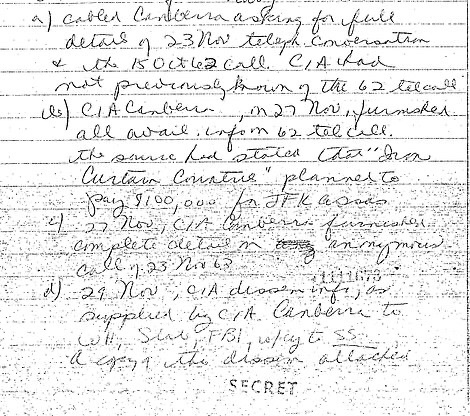 a) cabled Canberra asking for full
detail of 23 Nov teleph. conversation
& the 15 Oct 62 call. CIA had
not previously known of the 62 tel call
b) CIA Canberra, on 27 Nov, furnished
all avail. info on 62 tel call.
The source had stated that "Iron
Curtain Countries" planned to
pay $100,000 for JFK assas
c) 27 Nov, CIA Canberra furnished
complete detail on anonymous
call of 23 Nov 63
d) 29 Nov, CIA dissem info, as
supplied by CIA Canberra to
WH, State, FBI, w/cy to SS.
A copy of the dissem attached
SECRET